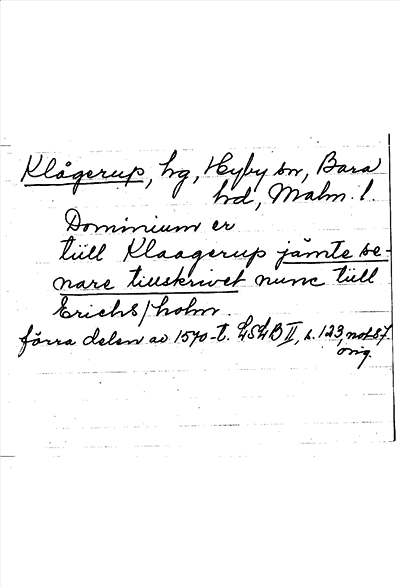 Klågerup, hg, Hyby sn, Bara
hd, Malm. l.
Dominium er
tüll Klaagerup jämte se-
nare tillskrivet nunc tüll
Erichs/holm.
förra delen av 1570-t. LSLB II, s. 123, not 87.
orig.